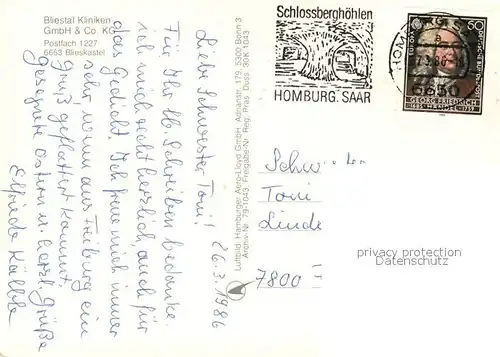 Bliestal Kliniken
GmbH & Co. KG
Postfach 1227
6653 Blieskastel
26.3.1986
Liebe Schwester Toni!
Für Ihr lb. Schreiben bedanke
ich mich recht herzlich, auch für
das Gedicht. Ich freue mich immer
sehr, wenn aus Freiburg ein
Gruß geflattert kommt.
Gesegnete Ostern u. herzl. Grüße
Elfriede
Luftbild Hamburger Aero-Lloyd GmbH
5300 Bonn 3
Archiv-Nr. 79-1043, Freigabe-Nr. Reg. Präs. Düss. 30K 1043
Schlossberghöhlen
HOMBURG, SAAR
HOMBURG, S
6650
50
EUROPA
DEUTSCHE BUNDESPOST
GEORG FRIEDRICH
HÄNDEL
Schwester
Toni
Linde
7800 F
privacy protection
Datenschutz